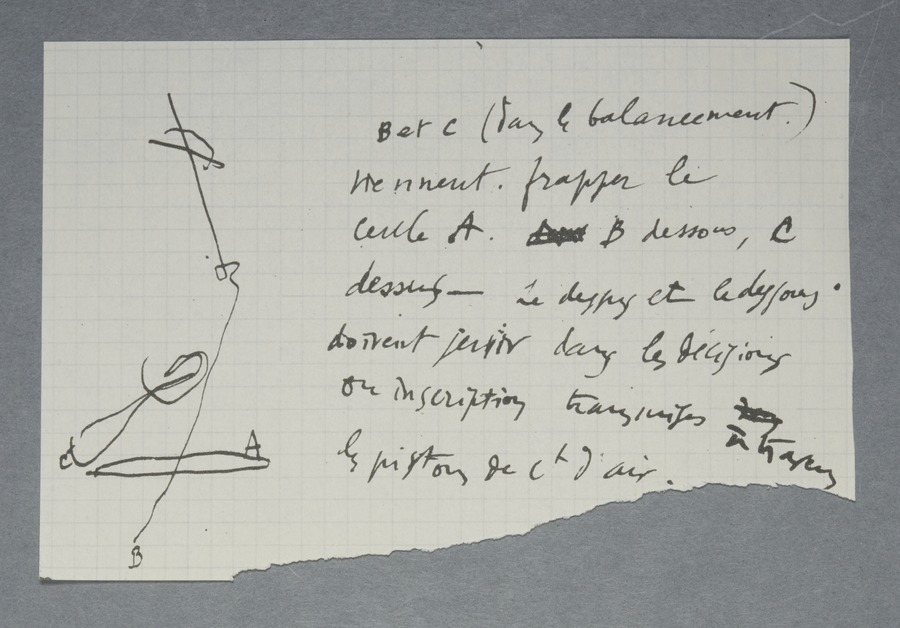 B et C (dans le balancement.)
viennent. frapper le
cercle A. B dessous, C
dessus — Le dessus et le dessous.
doivent servir dans les décisions
ou inscription transmises
à travers
les pistons de Ct d'air.
A
C
B